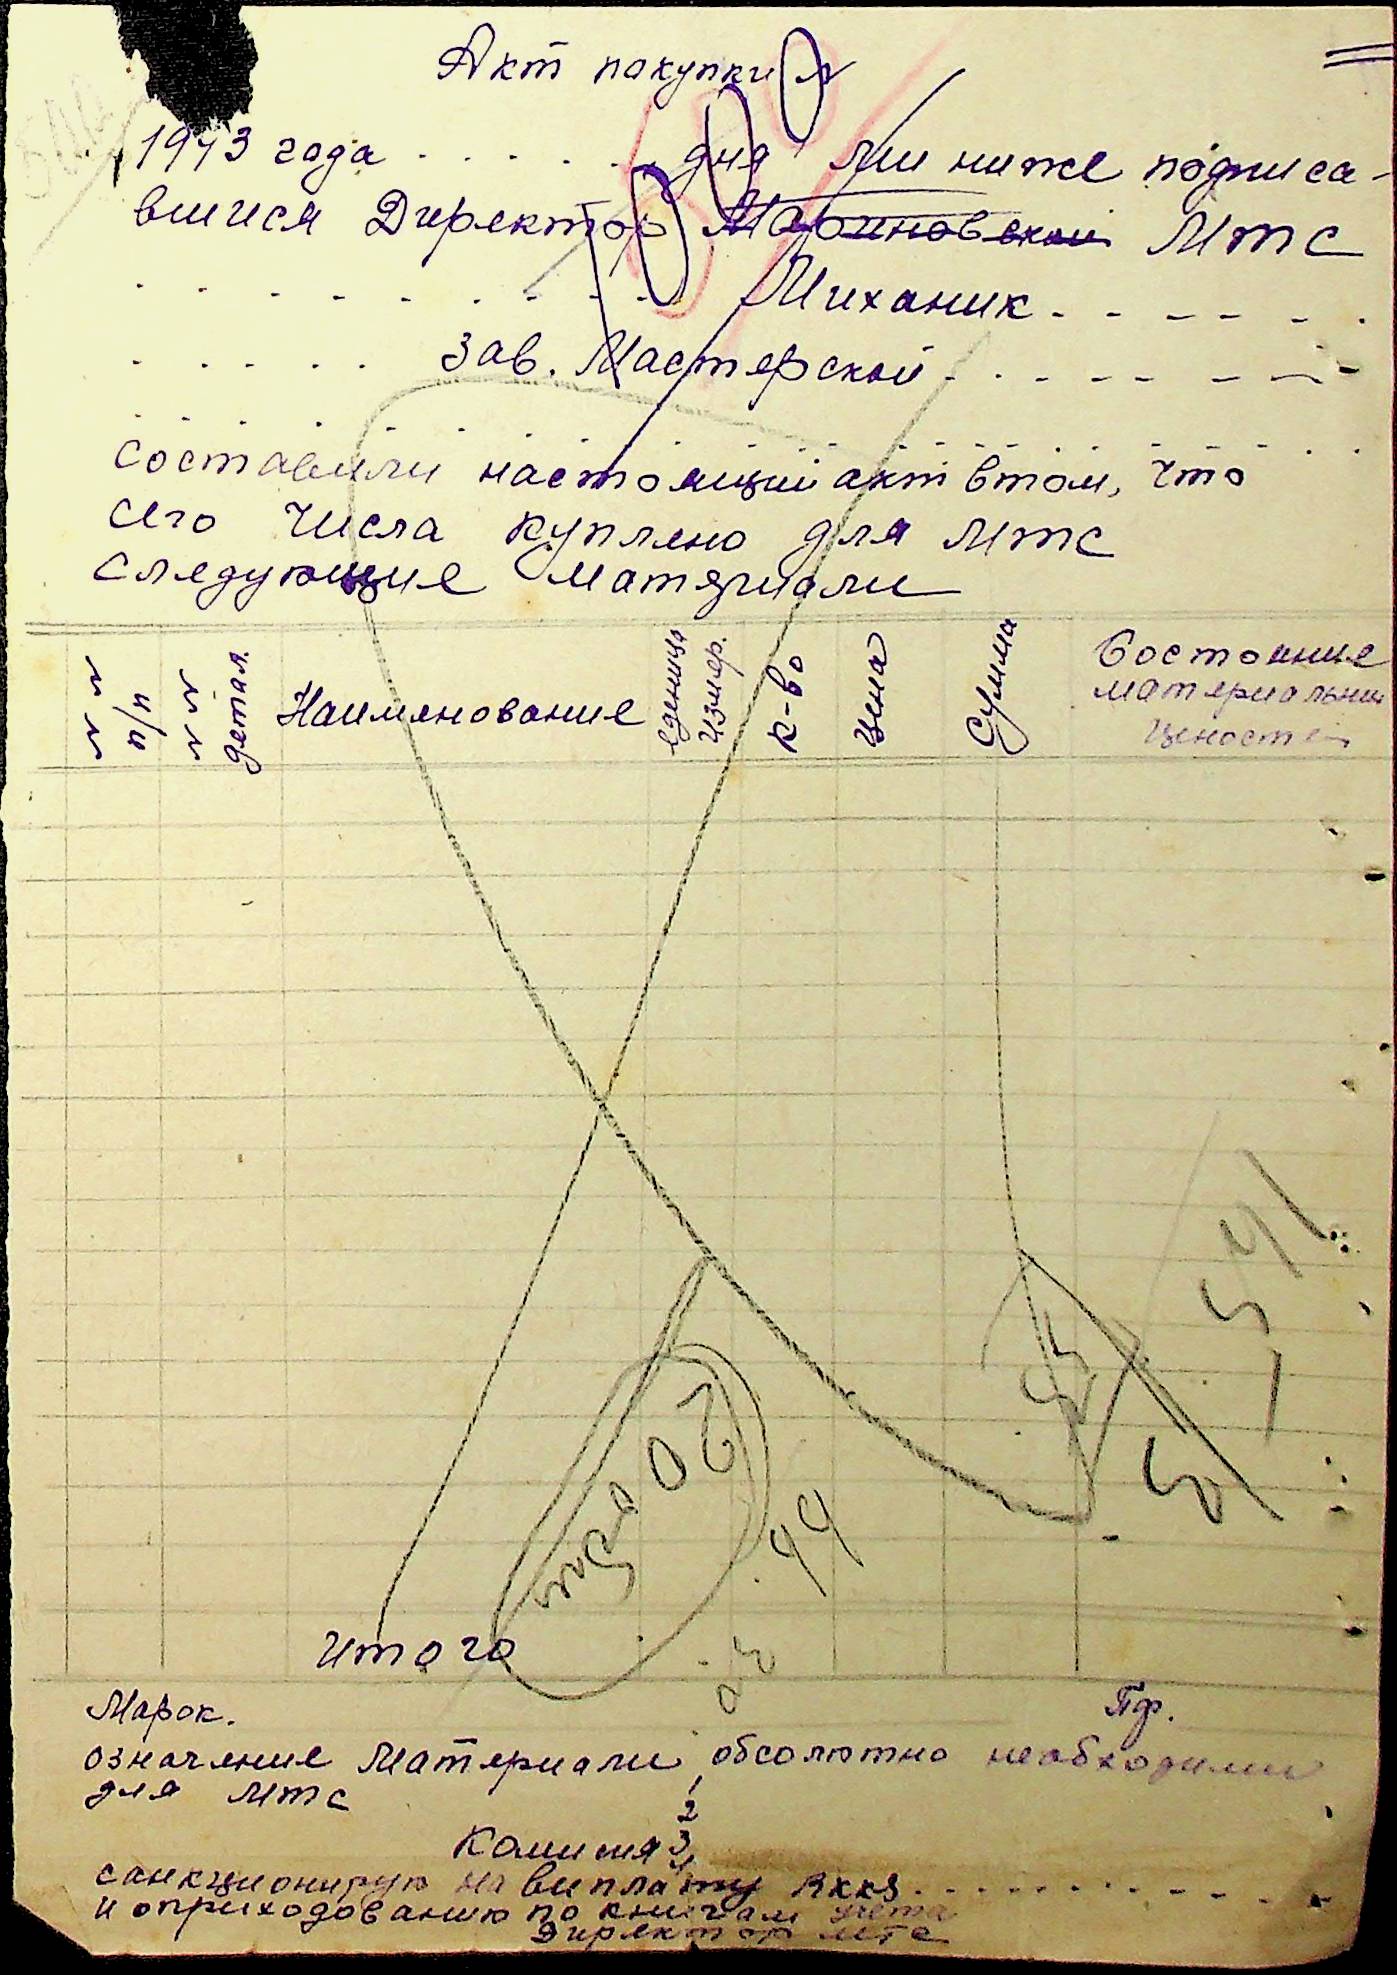 Акт покупки
1943 года . . . . . . дня мы ниже подписа-
вшиеся Директор Мариновской МТС
. . . . . . . . . Миханик . . . . . .
. . . . . Зав. Мастерской . . . . . . .
составили настоящий акт втом, что
сего числа куплено для МТС
следующие материали
№№ п/п №№ детал. Наименование еденица измер. к-во цена сумма Состояние материальних ценостей
20
44
Итого
Марок. Пф.
означение Материали обсолютно необходими
для МТС
1
2
Комисия 3
4
санкционирую на виплату RKKS . . . . . . . . .
и оприходованию по книгам учета
Директор МТС